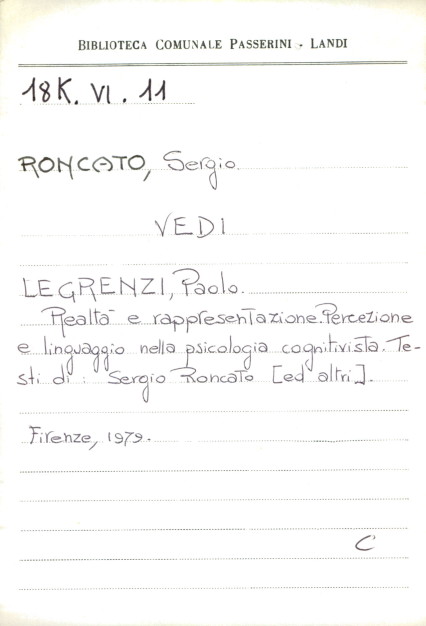 BIBLIOTECA COMUNALE PASSERINI - LANDI
18K. VI. 11
RONCATO, Sergio.
VEDI
LEGRENZI, Paolo.
Realtà e rappresentazione. Percezione
e linguaggio nella psicologia cognitivista. Te-
sti di: Sergio Roncato [ed altri].
Firenze, 1979.
C